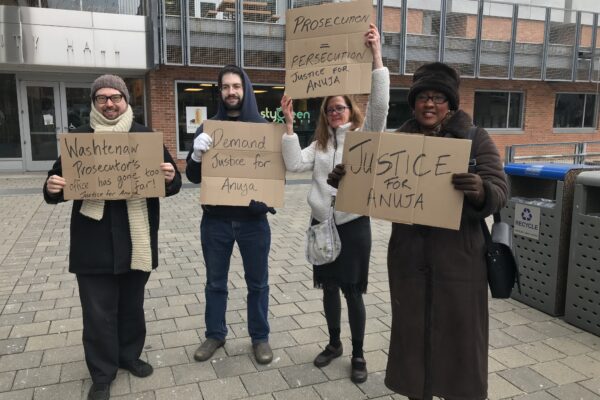 CITY HALL
PROSECUTION
=
PERSECUTION
JUSTICE FOR
ANUJA
Washtenaw
Prosecutor's
office has gone
too far!
Justice for Anuja
Demand
Justice for
Anuja
JUSTICE
FOR
ANUJA
RECYCLE